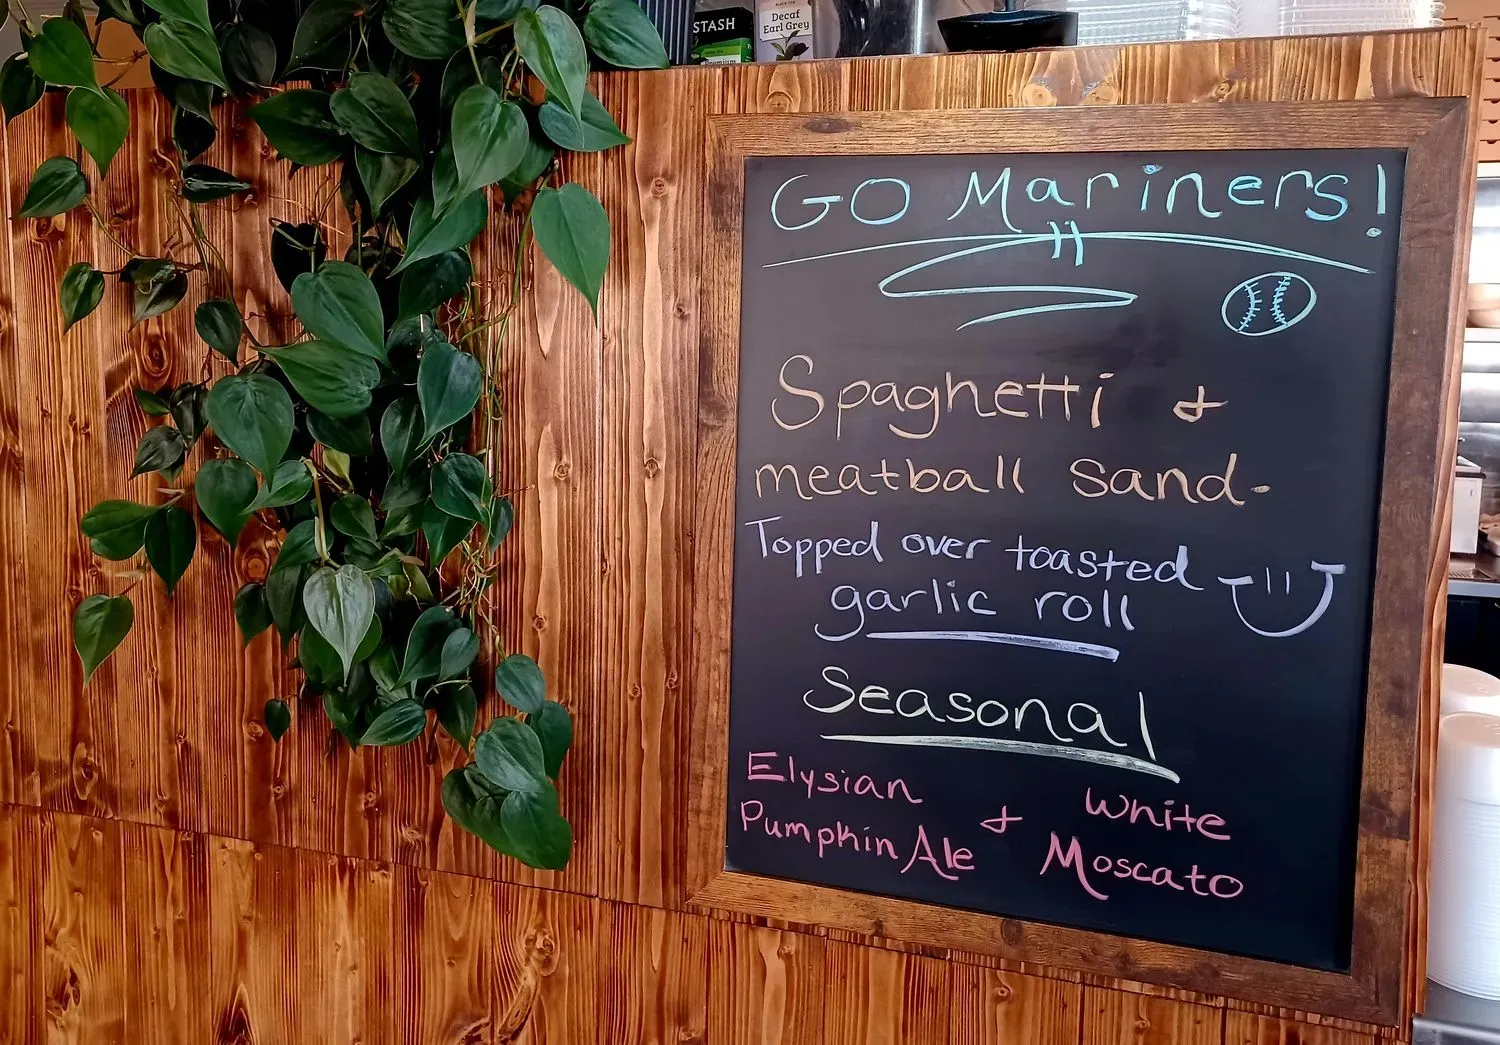 STASH
Decaf
Earl Grey
GO Mariners!
Spaghetti &
meatball sand.
Topped over toasted
garlic roll
Seasonal
Elysian
Pumpkin Ale & White
Moscato